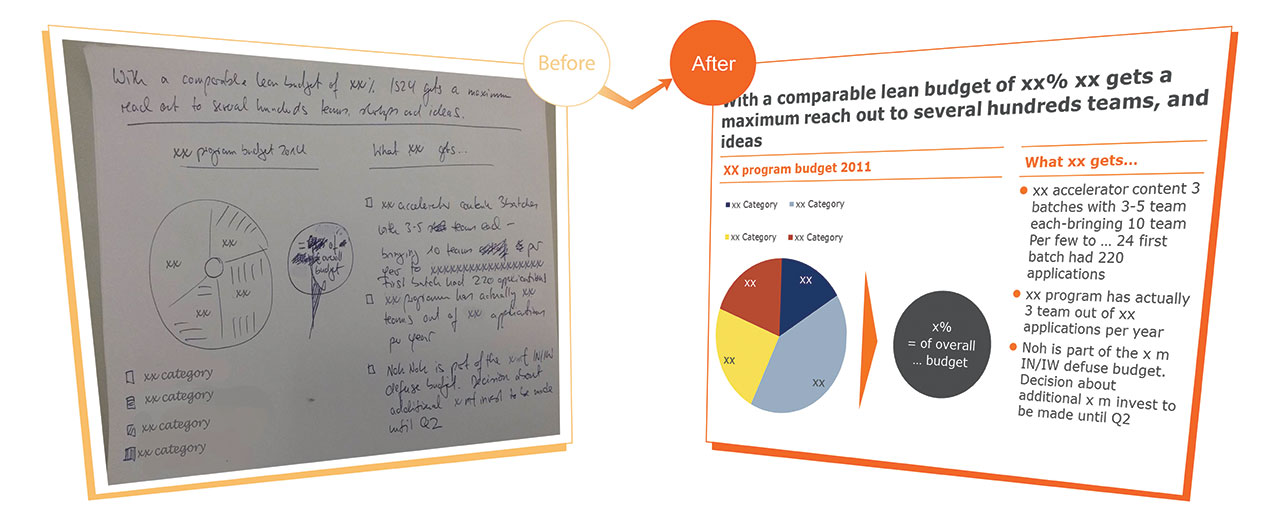 Before
After
With a comparable lean budget of xx% 1S24 gets a maximum
reach out to several hundreds teams, and ideas.
xx program budget
What xx gets...
xx accelerator 3 batches
with 3-5 team each –
bringing 10 teams per
year to xxxxxxxxxxxxxxxxx
First batch had 220 applications
xx programm has actually xx
teams out of xx applications
per year
Noh is part of the IN/IW
defuse budget. Decision about
additional x m invest to be made
until Q2
xx
xx
xx
xx
= of
overall
budget
xx category
xx category
xx category
xx category
With a comparable lean budget of xx% xx gets a
maximum reach out to several hundreds teams, and
ideas
XX program budget 2011
xx Category
xx Category
xx Category
xx Category
xx
xx
xx
xx
x%
= of overall
... budget
What xx gets...
xx accelerator content 3
batches with 3-5 team
each-bringing 10 team
Per few to ... 24 first
batch had 220
applications
xx program has actually
3 team out of xx
applications per year
Noh is part of the x m
IN/IW defuse budget.
Decision about
additional x m invest to
be made until Q2